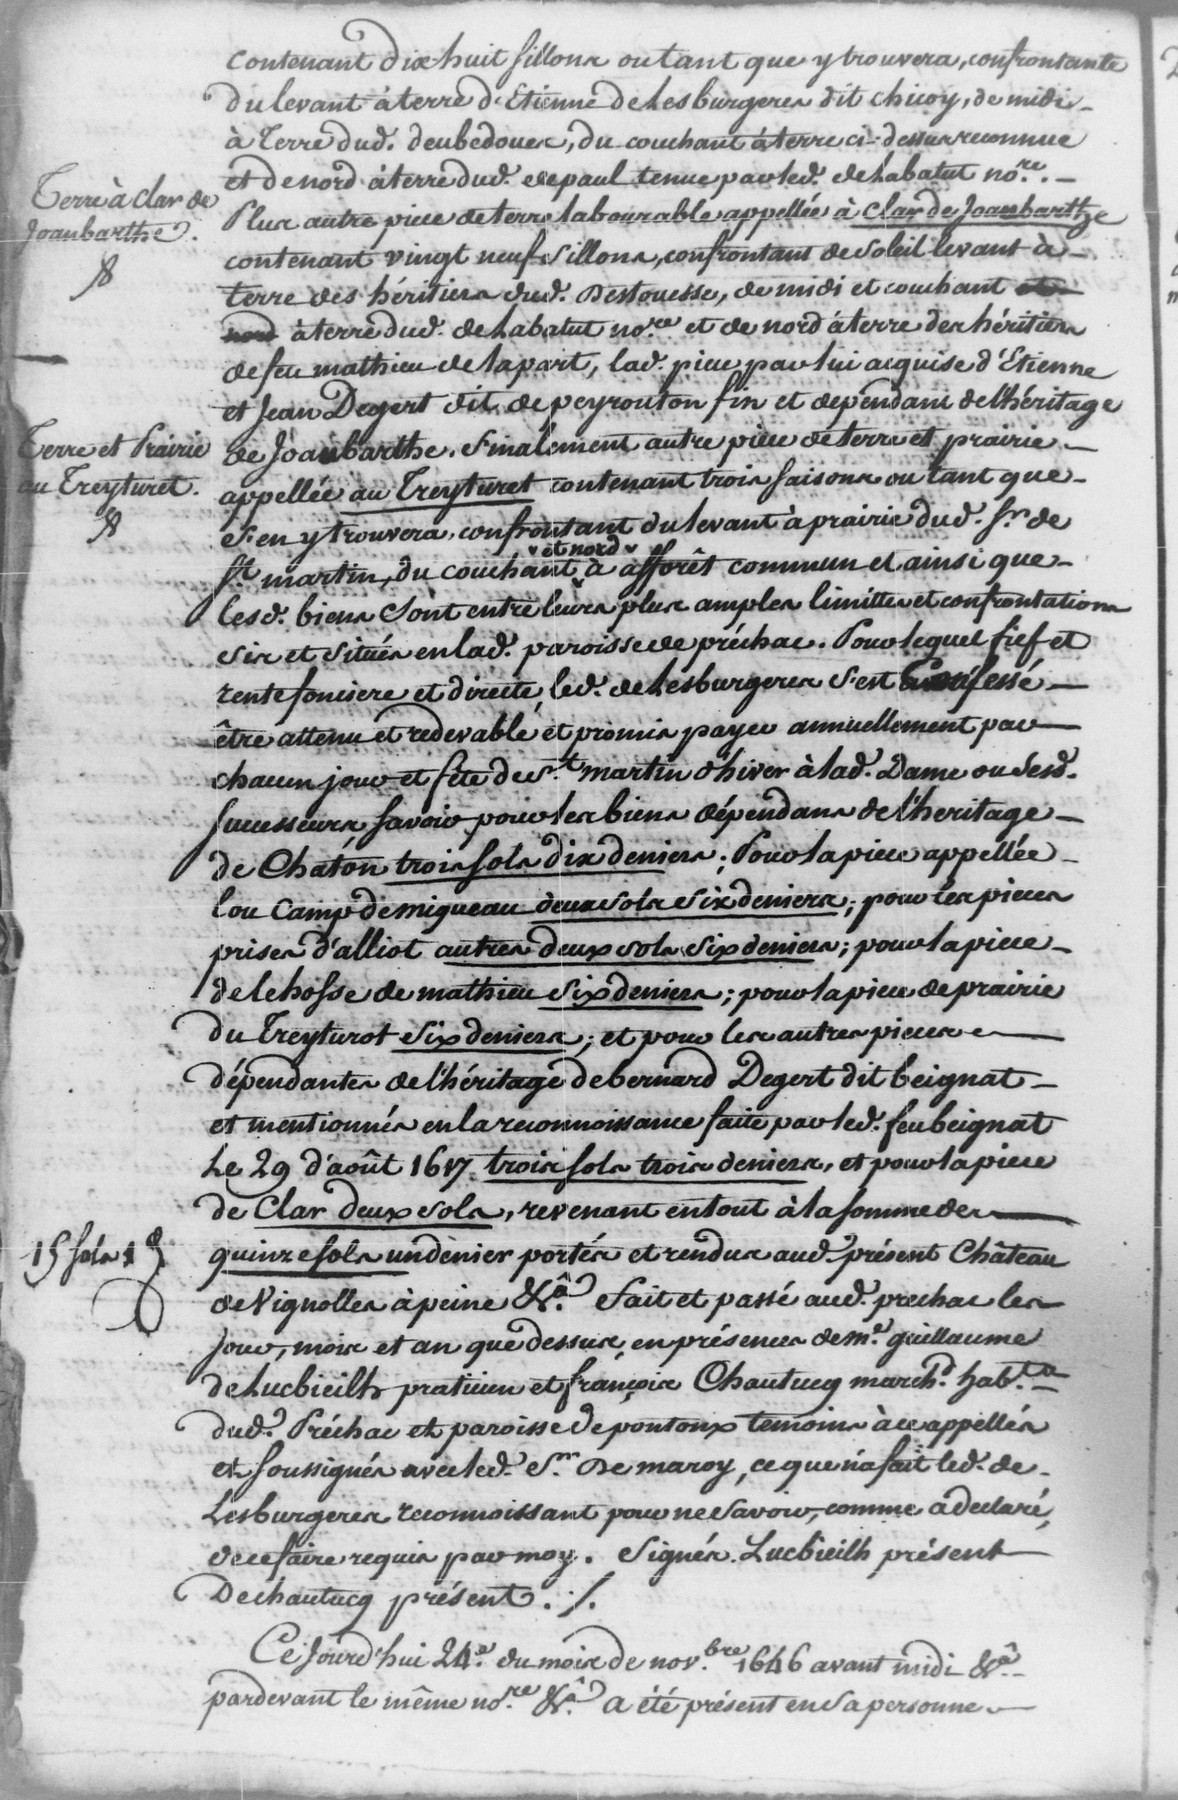 contenant dix huit sillons ou tant que y trouvera, confrontante
du levant à terre d'Etienne de Lesburgeres dit chicoy, de midi
à Terre dud. deubedouer, du couchant à terre ci-dessus reconnue
et de nord à terre dud. depaul tenue par led. de Labatut no.re. —
Terre à clar de
Joanbarthe.
Plus autre piece de terre labourable appellée à clar de Joanbarthe
contenant vingt neuf sillons, confrontant de soleil levant à
terre des héritiers dud. Destouesse, de midi et couchant et
nord à terre dud. de Labatut no.re et de nord à terre des héritiers
de feu mathieu de lapart, lad. piece par lui acquise d'Etienne
et Jean Degert dit de peyrouton fin et dépendant de l'héritage
Terre et Prairie
au Treyturet.
de Joanbarthe. Finalement autre piece de terre et prairie
appellée au Treyturet contenant trois saisons ou tant que
s'en y trouvera, confrontant du levant à prairie dud. S.r de
et nord
S.t martin, du couchant à afforêt commun et ainsi que
lesd. biens sont entre leurs plus amples limittes et confrontations
sis et situés en lad. paroisse de préchac. Pour lequel fief et
rente fonciere et directe, led. de Lesburgeres s'est Confessé
être attenu et redevable et promis payer annuellement par
chacun jour et fête de S.t martin d'hiver à lad. Dame ou sesd.
successeurs, savoir pour les biens dépendans de l'heritage
de Chatón trois sols dix deniers; Pour la piece appellée
lou Camp de miqueau deux sols six deniers; pour les pieces
prises d'alliot autres deux sols six deniers; pour la piece
de lehosse de mathieu six deniers; pour la piece de prairie
du Treyturot six deniers; et pour les autres pieces
dépendantes de l'héritage de bernard Degert dit beignat
et mentionnés en la reconnoissance faite par led. feu beignat
Le 29 d'août 1617 trois sols trois deniers, et pour la piece
de Clar deux sols, revenant en tout à la somme de
15 sols 1 d
quinze sols un denier portés et rendus aud. présent Château
de Vignolles à peine &.a Fait et passé aud. prechac les
jour, mois et an que dessus, en présence de m.e guillaume
de Lucbieilh praticien et françois Chautucq march.d hab.ts
dud. Préchac et paroisse de pontonx temoins à ce appellés
et soussignés avec led. S.r De maroy, ce que n'a fait led. de
Lesburgeres reconnoissant pour ne savoir, comme a declaré,
de ce faire requis par moy. Signés. Lucbieilh présent
De chautucq présent. ./.
Ce Jourd'hui 24.e du mois de nov.bre 1646 avant midi &.a
pardevant le même no.re &.a a été présent en sa personne